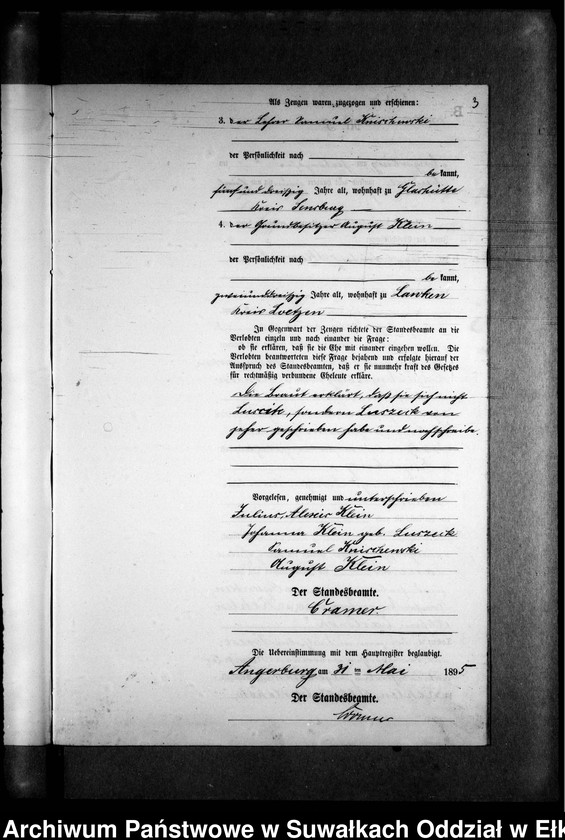 3
Als Zeugen waren zugezogen und erschienen:
3. der Lehrer Samuel Knischewski
der Persönlichkeit nach
bekannt,
fünfunddreißig Jahre alt, wohnhaft zu Glashütte
Kreis Sensburg
4. der Grundbesitzer August Klein
der Persönlichkeit nach
bekannt,
zweiunddreißig Jahre alt, wohnhaft zu Lawken
Kreis Loetzen
In Gegenwart der Zeugen richtete der Standesbeamte an die
Verlobten einzeln und nach einander die Frage:
ob sie erklären, daß sie die Ehe mit einander eingehen wollen. Die
Verlobten beantworteten diese Frage bejahend und erfolgte hierauf der
Ausspruch des Standesbeamten, daß er sie nunmehr kraft des Gesetzes
für rechtmäßig verbundene Eheleute erkläre.
Die Braut erklärt, daß sie sich nicht
sondern Luszeck von
jeher geschrieben habe und noch schreibe.
Vorgelesen, genehmigt und unterschrieben
Julius, Alexis Klein
Johanna Klein geb. Luszeck
Samuel Knischewski
August Klein
Der Standesbeamte.
Cramer.
Die Uebereinstimmung mit dem Hauptregister beglaubigt.
Angerburg am 31 ten Mai 1895
Der Standesbeamte.
Cramer
Archiwum Państwowe w Suwałkach Oddział w Ełk